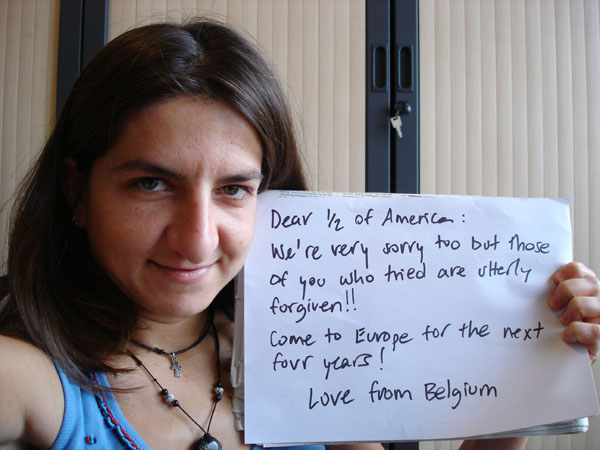 Dear 1/2 of America:
We're very sorry too but those
of you who tried are utterly
forgiven!!
Come to Europe for the next
four years!
Love from Belgium